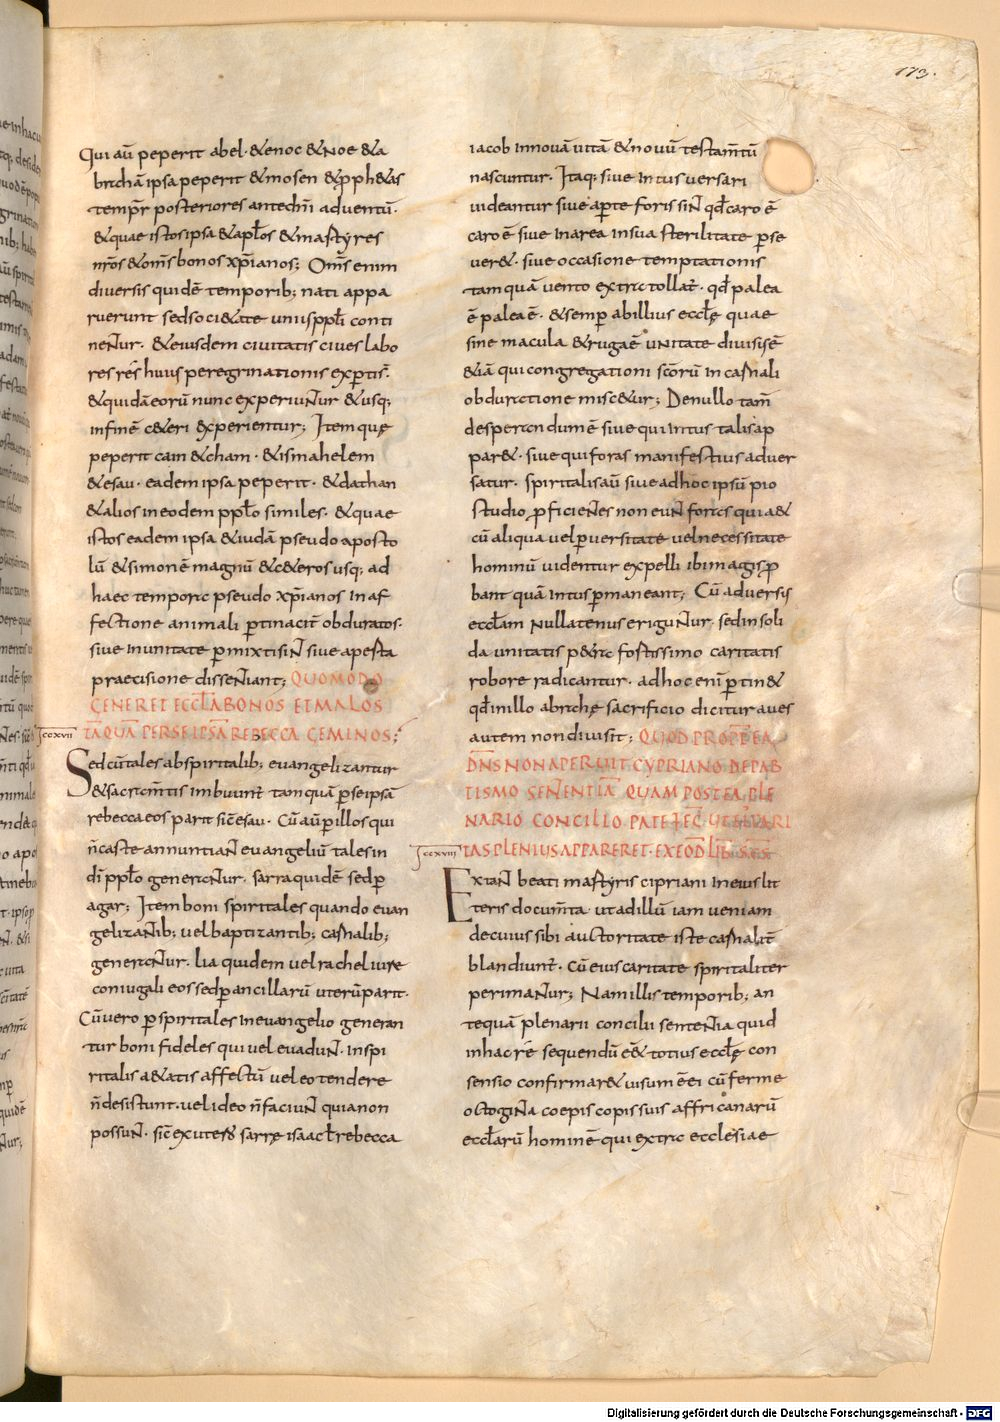 173.
Qui aū peperit abel· &enoc &Noe &a
brchā ipsa peperit &mosen &pph&as
tempr̄ posteriores antedn̄i adventū·
&quae istos ipsa &apl̄os &martyres
nr̄os &om̄s bonos xp̄ianos; Om̄s enim
diversis quidē temporib; nati appa
ruerunt sed soci&ate unius ppl̄i conti
neNtur· &eiusdem civitatis cives labo
res rēs huius peregrinationis exp̄tis·
&quidā eorū nunc experiuNtur &usq;
in finē c&eri experientur; Item quę
peperit cam &cham· &ismahelem
&esau· eadem ipsa peperit· &dathan
&alios in eodem ppl̄o similes· &quae
istos eadem ipsa &iudā pseudo aposto
lū &simonē magnū &c&eros usq; ad
haec tempora pseudo xp̄ianos in af
fectione animali ptinacit̄ obduratos·
sive in unitate pmixti siNt sive apesta
praecisione disseNtiant; QUOMODO
GENERET ECCL̄A BONOS ET MALOS
Iccxvii TĀQUĀ PER SE IPSĀ REBECCA GEMINOS;
Sed cūtales ab spiritalib; evangelizantur
&sacram̄tis imbuunt̄ tamquā pse ipsā
rebecca eos parit sic̄ esau· Cū aū p illos qui
n̄ caste annuntiaNt evangeliū tales in
dī ppl̄o generaNtur· sarra quidē sed p
agar; Item boni spiritales quando evan
gelizaNtib; vel baptizantib; carnalib;
generaNtur· lia quidem vel rachel iure
coniugali eos sed p ancillarū uterū parit·
Cū vero p spiritales in evangelio generan
tur boni fideles qui vel evaduNt· in spi
ritalis a&atis affectū vel eo tendere
n̄ desistunt· vel ideo n̄ faciuNt quia non
possuNt· sic̄ ex utero sarrę isaac t̄ rebecca
iacob in novā vitā & novū testam̄tū
nascuntur· Itaq; sive intus versari
videantur sive apte foris siNt qd̄ caro ē
caro ē sive in area in sua sterilitate pse
ver&· sive occasione temptationis
tamquā vento extra tollat̄· qd̄ palea
ē palea ē· &semp ab illius eccl̄ę quae
sine macula &ruga ē unitate divisus ē
&iā qui congregationi sc̄orū in carnali
obduratione misc&ur; De nullo tam̄
desperandum ē sive qui intus talis ap
par&· sive qui foras manifestius adver
satur· spiritalis aū sive ad hoc ipsū pio
studio pficieNtes non euNt foras quia &
cū aliqua vel pversitate vel necessitate
hominū videntur expelli ibi magis p
bant quā intus pmaneant; Cū adversis
eccl̄am nullatenus eriguNtur sed in soli
da unitatis p&ra fortissimo caritatis
robore radicantur· ad hoc enī ptin&
qd̄ in illo abrahę sacrificio dicitur aves
autem non divisit; QUOD PROPT̄EA
DN̄S NON APERUIT CYPRIANO DE BAB
TISMO SENTENTIĀ QUAM POSTEA PLE
NARIO CONCILIO PATEFEC̄ UT CHARI
Iccxviii TAS PLENIUS APPARERET· EX EOD̄ LIB̄ S̄C̄S
ExtaNt beati martyris cipriani in eius lit
teris docum̄ta ut ad illū iam veniam
de cuius sibi auctoritate iste carnalit̄
blandiunt̄· cū eius caritate spiritaliter
perimaNtur; Nam illis temporib; an
tequā plenarii concilii senteNtia quid
in hac rē sequendū eē̄ totius eccl̄ę con
sensio confirmar& visum ē ei cū ferme
octogiNta coepiscopis suis affricanarū
eccl̄arū hominē qui extra ecclesiae
Digitalisierung gefördert durch die Deutsche Forschungsgemeinschaft - DFG